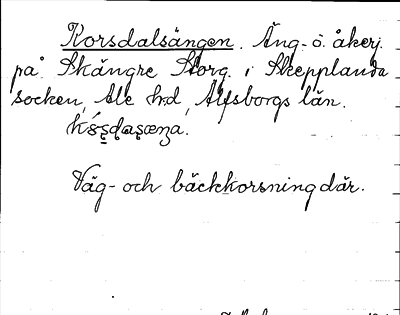 Korsdalsängen. Äng- o. åkerj.
på Skångre Storg. i Skepplanda
socken, Ale h:d, Älfsborgs län.
Väg- och bäckkorsning där.